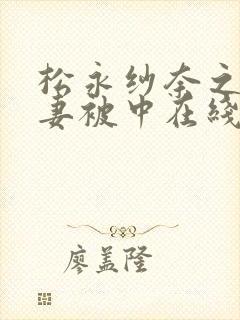 松永纱奈之
妻被中在线
廖盖隆